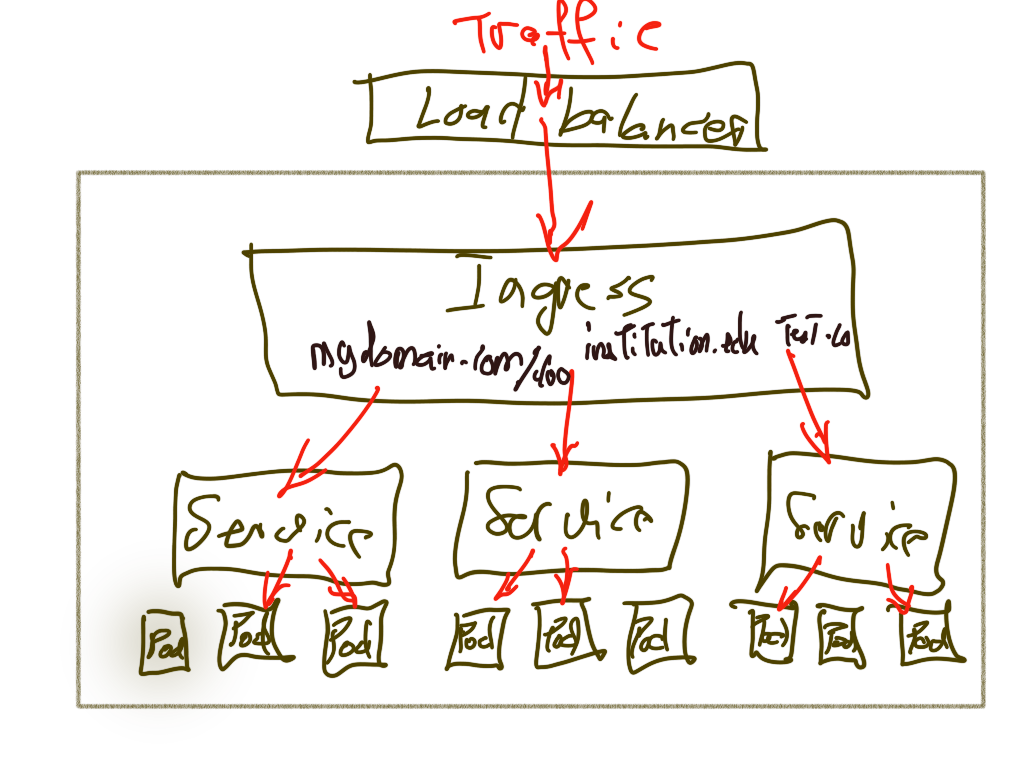 Traffic
Load balancer
Ingress
mydomain.com/foo institution.edu Test.co
Service Service Service
Pod Pod Pod Pod Pod Pod Pod Pod Pod